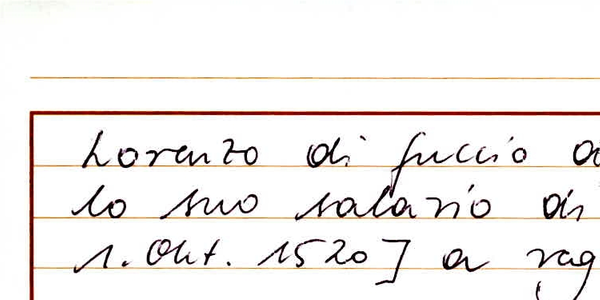 Lorenzo di fuccio
lo suo salario di
1. Okt. 1520] a rag